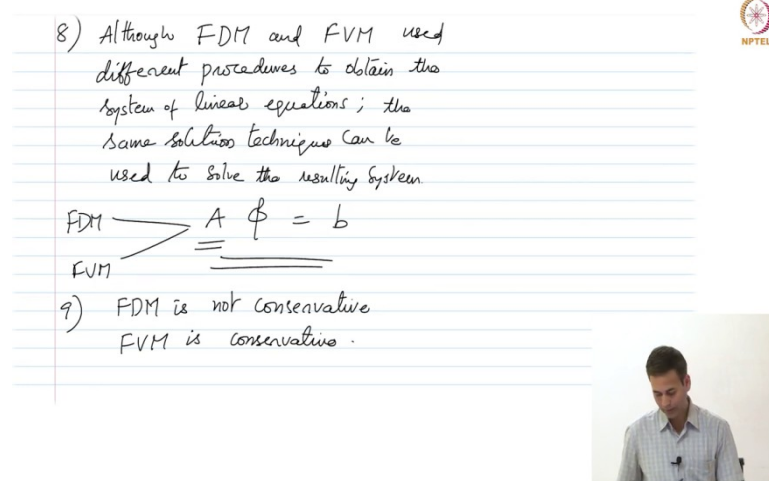 8) Although FDM and FVM used
different procedures to obtain the
system of linear equations; the
same solution technique can be
used to solve the resulting system.
FDM
A ϕ = b
FVM
9) FDM is not conservative
FVM is conservative.
NPTEL